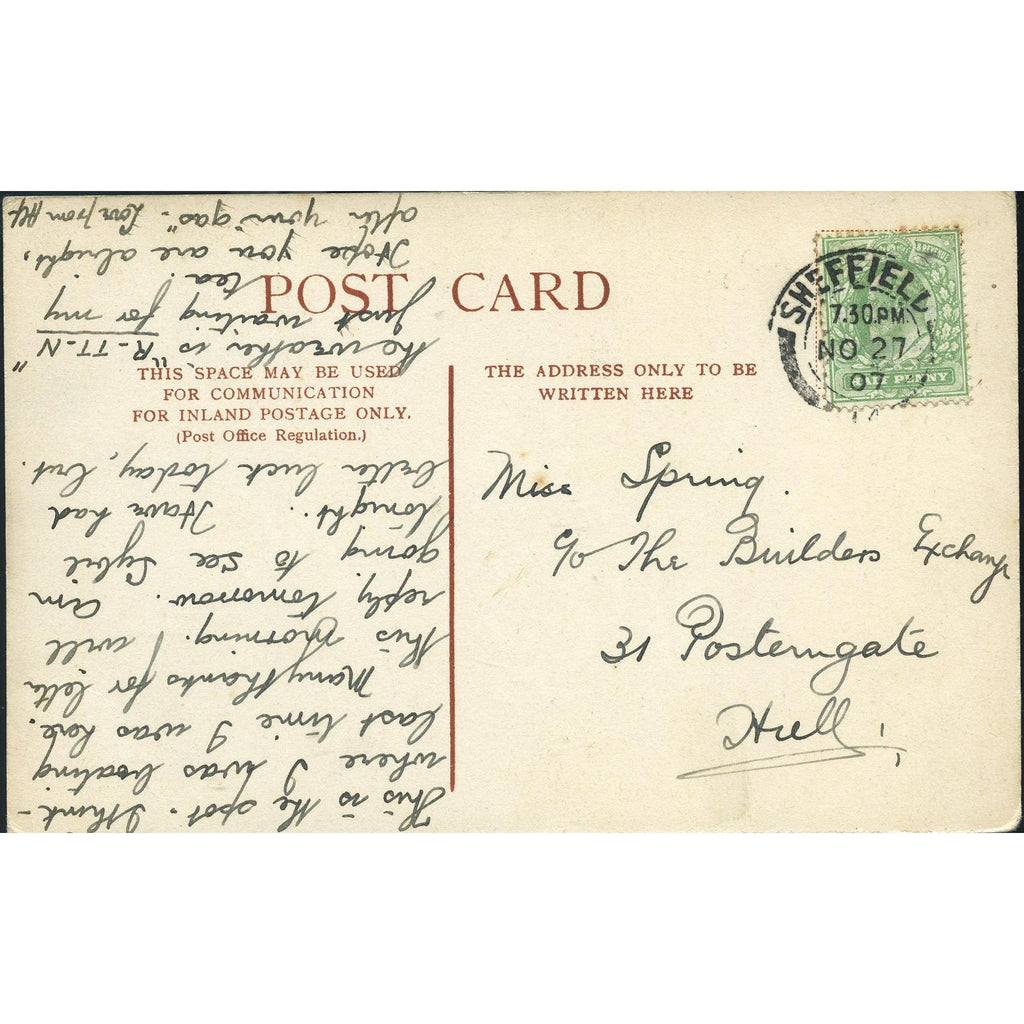 POST CARD
THIS SPACE MAY BE USED
FOR COMMUNICATION
FOR INLAND POSTAGE ONLY.
(Post Office Regulation.)
THE ADDRESS ONLY TO BE
WRITTEN HERE
& REVENUE
HALF PENNY
SHEFFIELD
7.30 PM
NO 27
07
Miss Spring.
c/o The Builders Exchange
31 Posterngate
Hull,
This is the spot. I think
where I was boating
last time I was here.
Many thanks for letter
this morning. I will
reply tomorrow. Am
going to see Sybil
tonight. Have had
better luck today, but
the weather is "R-TT-N"
Just waiting for my
tea.
Hope you are alright,
after your "gas". Love from